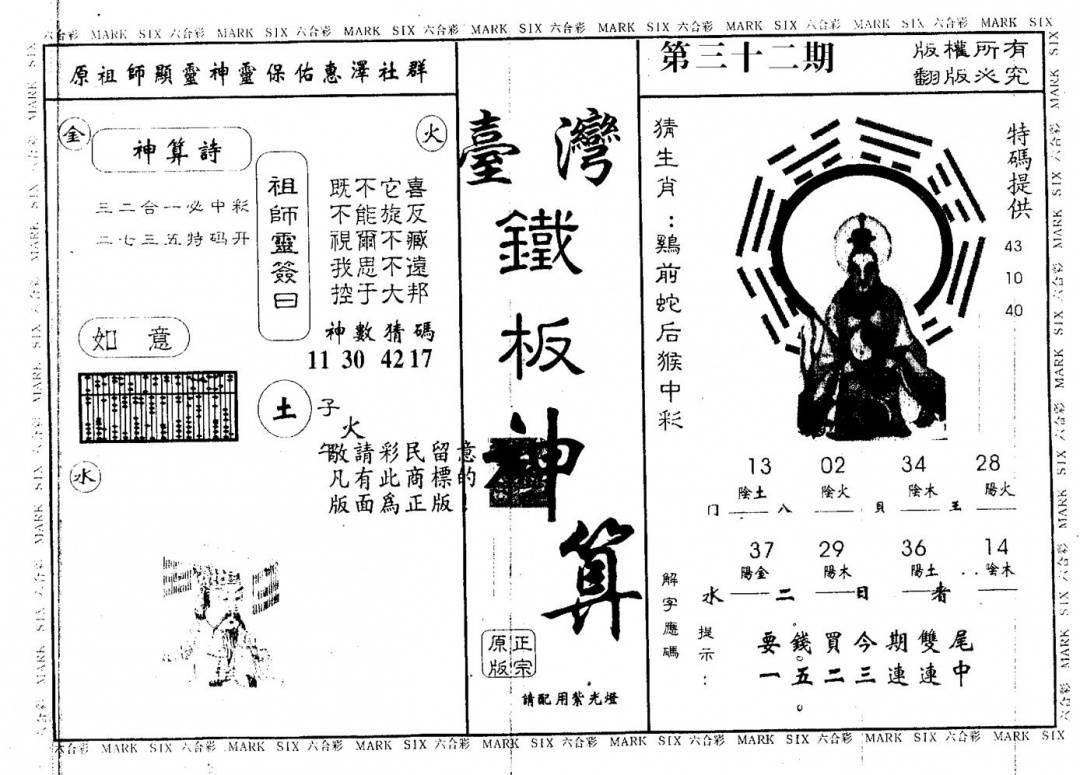 六合彩 MARK SIX 六合彩 MARK SIX 六合彩 MARK SIX 六合彩 MARK SIX 六合彩 MARK SIX 六合彩 MARK SIX 六合彩 MARK SIX 六合彩 MARK SIX
原祖師顯靈神靈保佑惠澤社群
金
神算詩
火
三二合一必中彩
二七三五特码开
祖師靈簽曰
既不它喜
不能旋反
視爾不臧
我思不遠
控于大邦
神數猜碼
11 30 42 17
如意
土
子
火
午
敬請彩民留意
凡有此商標的
版面爲正版!
水
臺灣
鐵
板
神
算
正宗
原版
請配用紫光燈
第三十二期
版權所有
翻版必究
猜生肖:鷄前蛇后猴中彩
特碼提供
43
10
40
13 02 34 28
陰土 陰火 陰木 陽火
门 八 貝 王
37 29 36 14
陽金 陽木 陽土 陰木
水 二 日 者
解字應碼
提示:
要錢買今期雙尾
一五二三連連中
六合彩 MARK SIX 六合彩 MARK SIX 六合彩 MARK SIX 六合彩 MARK SIX 六合彩 MARK SIX 六合彩 MARK SIX 六合彩 MARK SIX 六合彩 MARK SIX